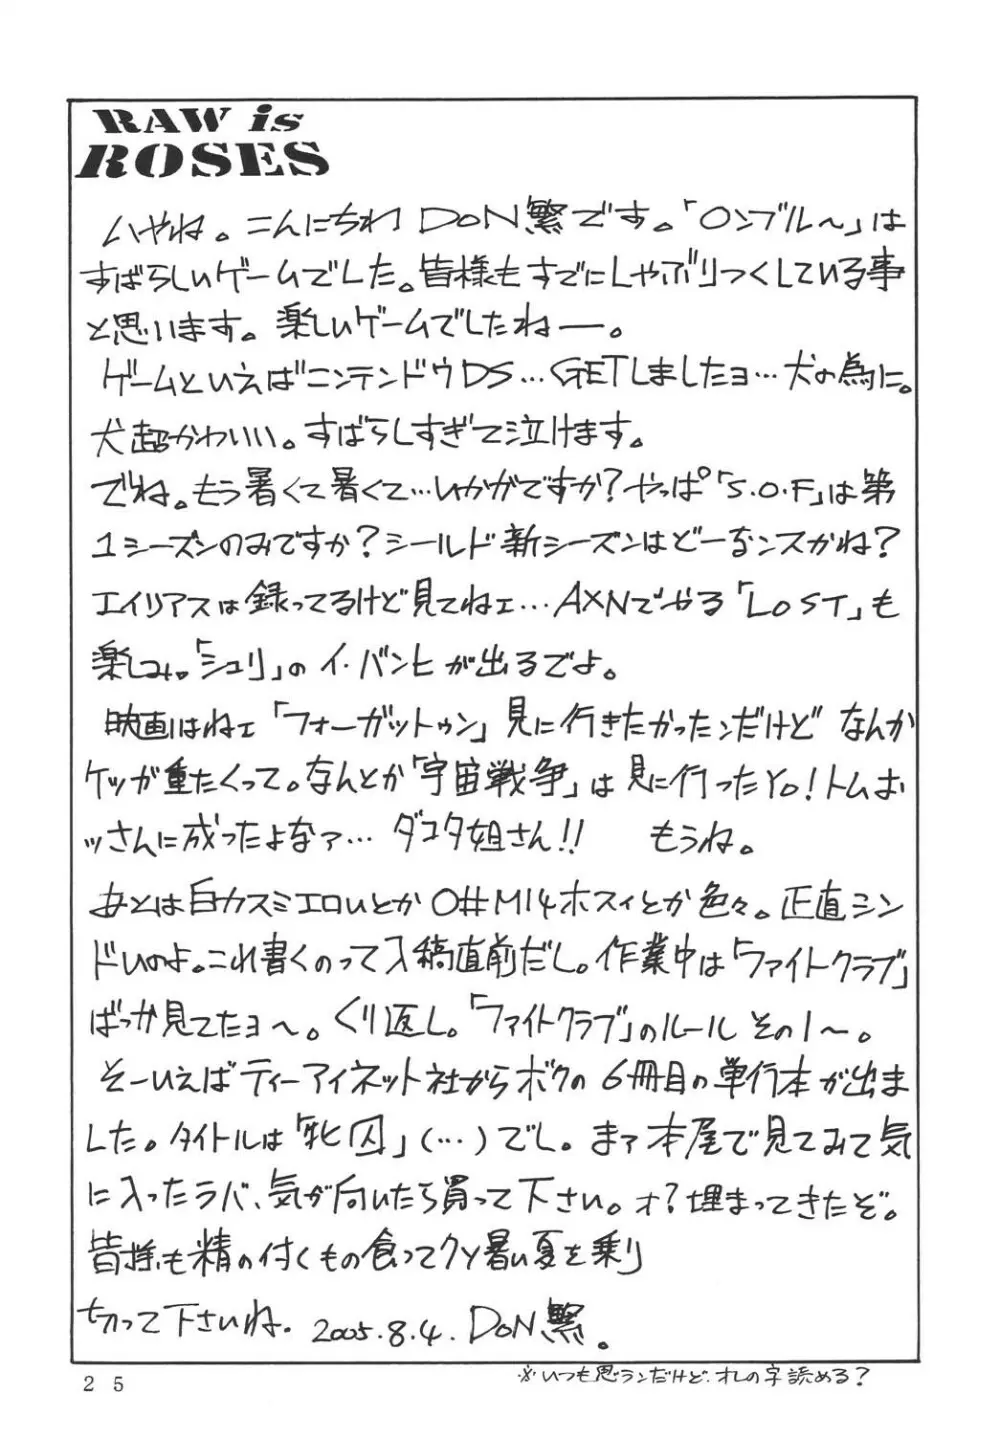 RAW is
ROSES
いやね。こんにちわ DoN繁です。「ロンブル〜」は
すばらしいゲームでした。皆様もすでにしゃぶりつくしている事
と思います。楽しいゲームでしたねー。
ゲームといえばニンテンドウDS…GETしましたヨ…犬の為に。
犬超かわいい。すばらしすぎて泣けます。
でね。もう暑くて暑くて…いかがですか?やっぱ「S.O.F」は第
1シーズンのみですか?シールド新シーズンはどーなンスかね?
エイリアスは録ってるけど見てねェ…AXNでやる「LOST」も
楽しみ。「シュリ」のイ・バンヒが出るでよ。
映画はねェ「フォーガットゥン」見に行きたかったンだけど なんか
ケツが重たくって。なんとか「宇宙戦争」は見に行ったYo!トムおッ
ッさんに成ったよなァ… ダコタ姐さん!! もうね。
あとは白カスミエロいとか O#M14ホスィとか色々。正直シン
ドいのよ。これ書くのって入稿直前だし。作業中は「ファイトクラブ」
ばっか見てたヨ〜。くり返し。「ファイトクラブ」のルール その1〜。
そーいえばティーアイネット社からボクの 6冊目の単行本が出ま
した。タイトルは「牝囚」(…)でし。まァ本屋で見てみて気
に入ったラバ、気が向いたら買って下さい。オ?埋まってきたぞ。
皆様も精の付くもの食ってクソ暑い夏を乗り
切って下さいね。2005.8.4. DoN繁。
25
※いつも思うンだけど、オレの字読める?